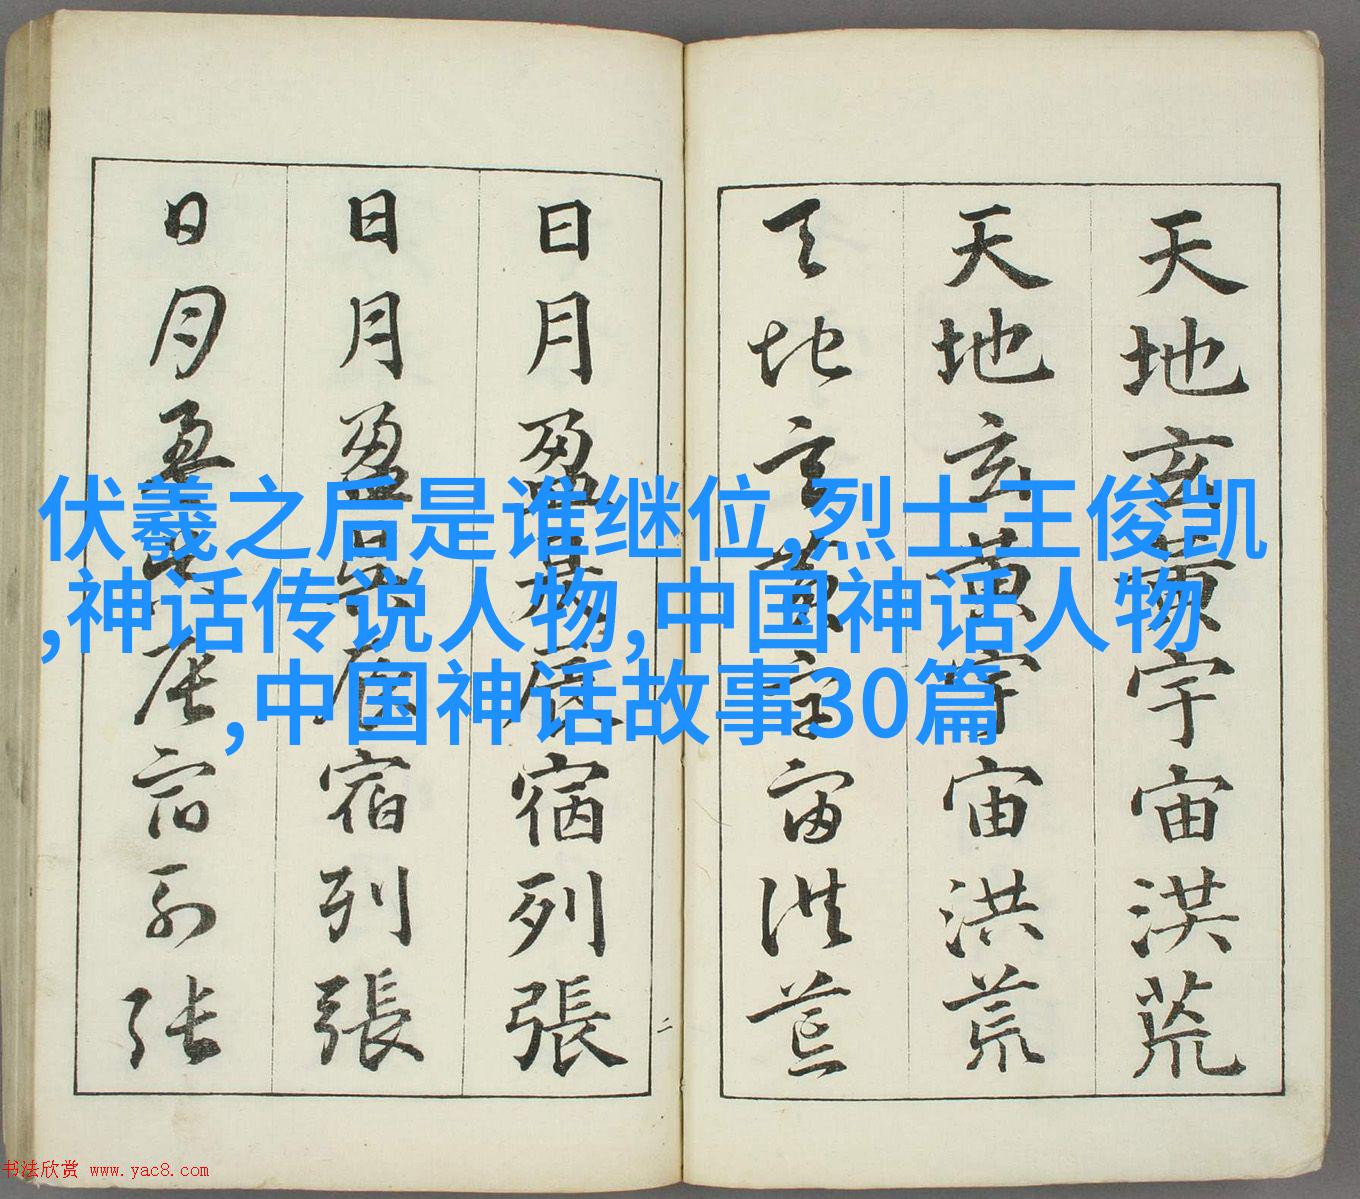 天地玄黄宇宙洪荒
天地玄黄宇宙洪荒
天地玄黄宇宙洪荒
日月盈昃辰宿列張
日月盈昃辰宿列張
日月盈昃辰宿列張
二
伏羲之后是谁继位,烈士王俊凯
,神话传说人物,中国神话人物
,中国神话故事30篇
书法欣赏 www.yac8.com